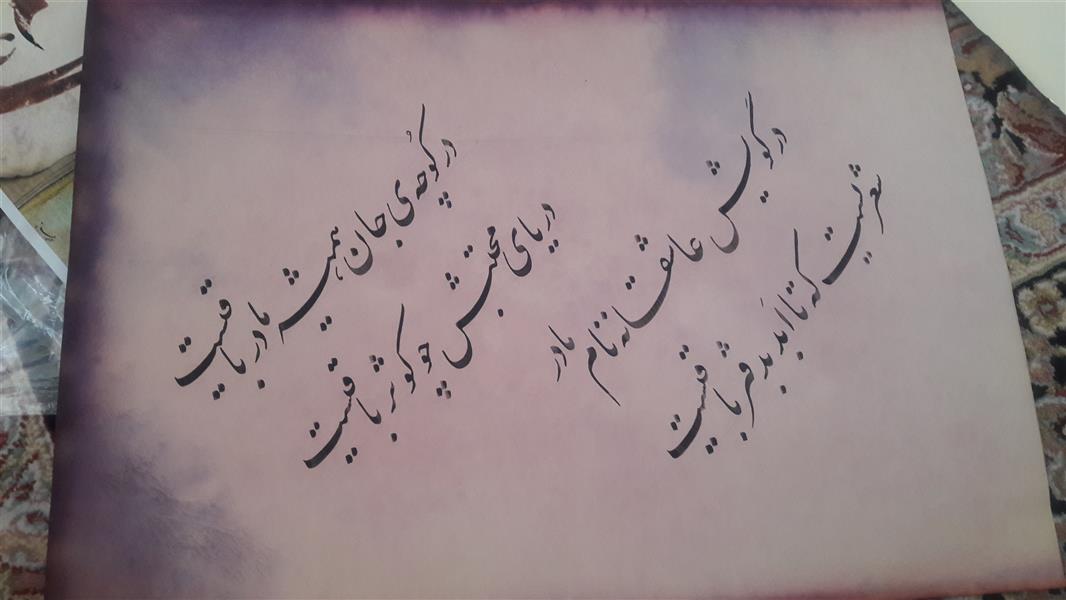 در کُوچه‌ی جان همیشه مادر باقیست
دریای محبتش چو کوثر باقیست
در گویش عاشقانه نام مادر
شعریست که تا اَبد بدفتر باقیست